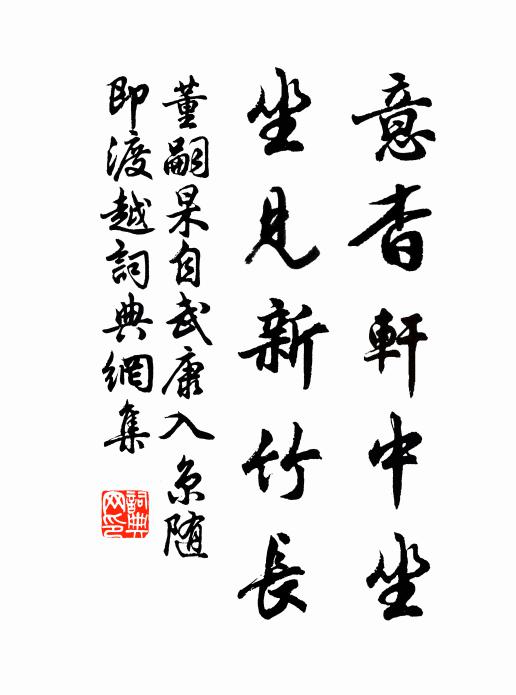 意杳軒中坐
坐見新竹長
董嗣杲自武康入京随
即渡越詞典網集
詞典网印